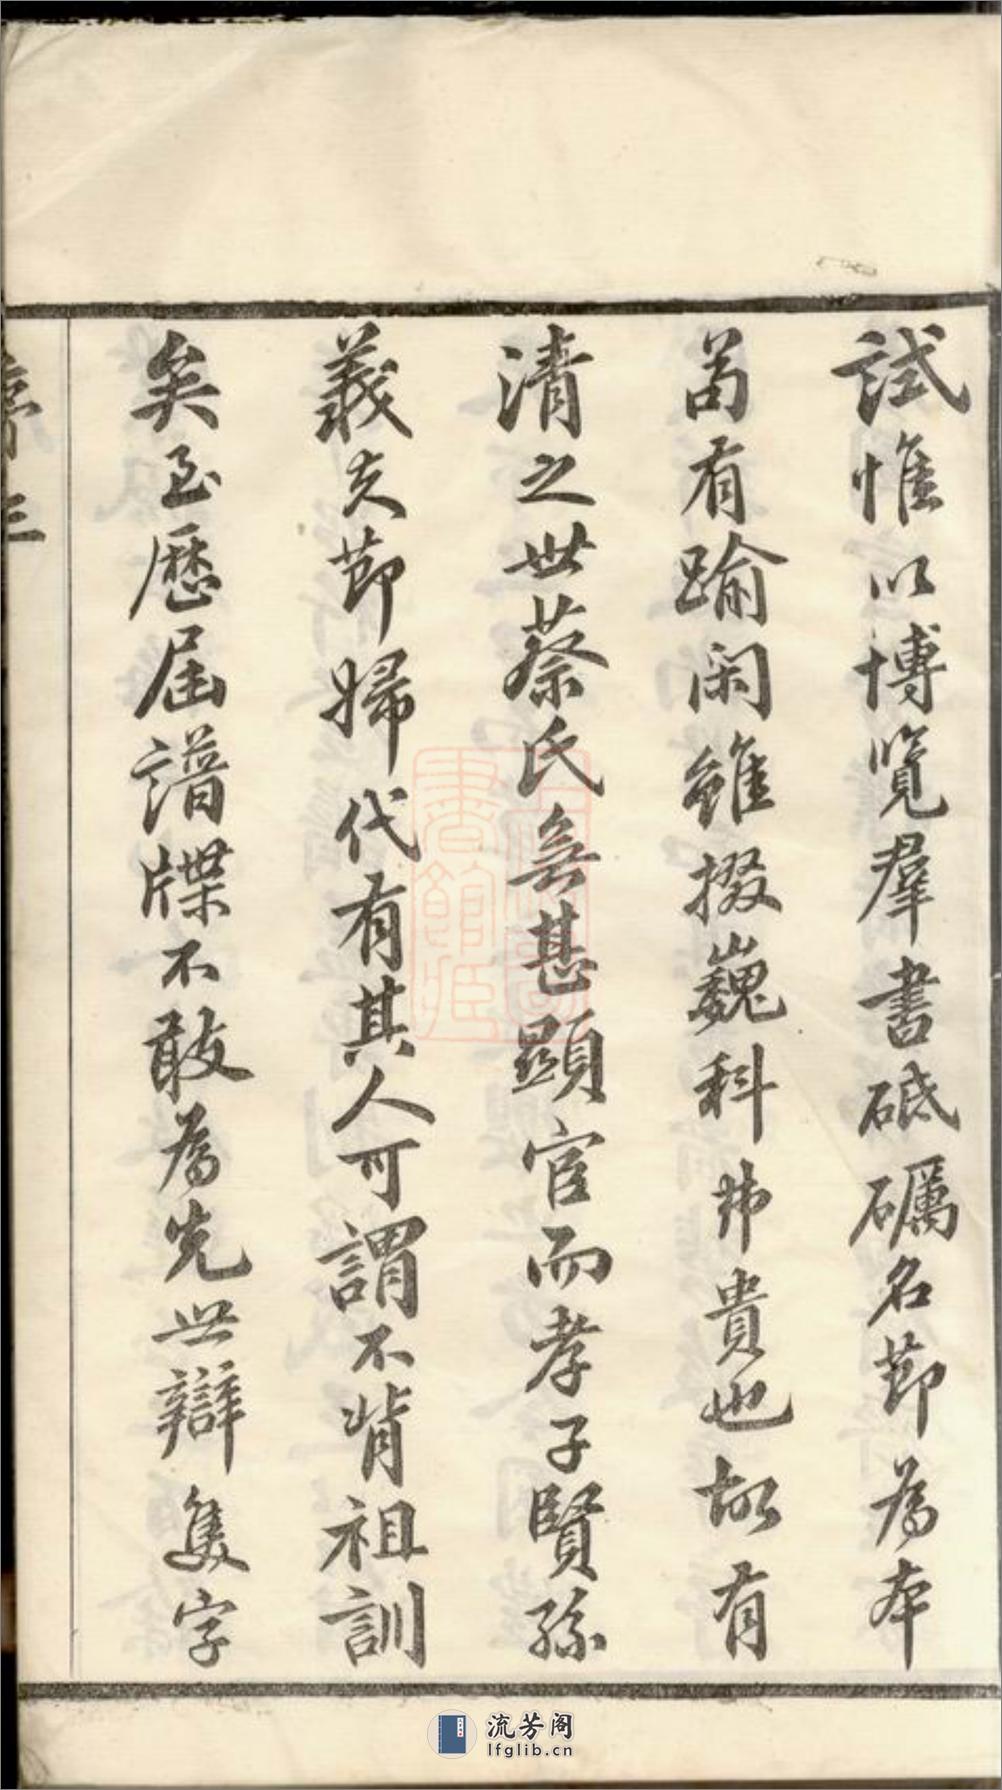 試惟以博覽羣書砥礪名節為本
苟有踰閑雖掇巍科弗貴也故有
清之世蔡氏無甚顯宦而孝子賢孫
義夫節婦代有其人可謂不背祖訓
矣至歷屆譜牒不敢為先世辯隻字
序 三
流芳阁
lfglib.cn